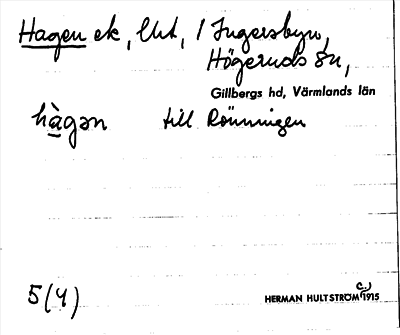 Hagen ek, Uht, / Ingersbyn,
Högeruds sn,
Gillbergs hd, Värmlands län
hàgən till Rönningen
5(4)
HERMAN HULTSTRÖM c. 1915